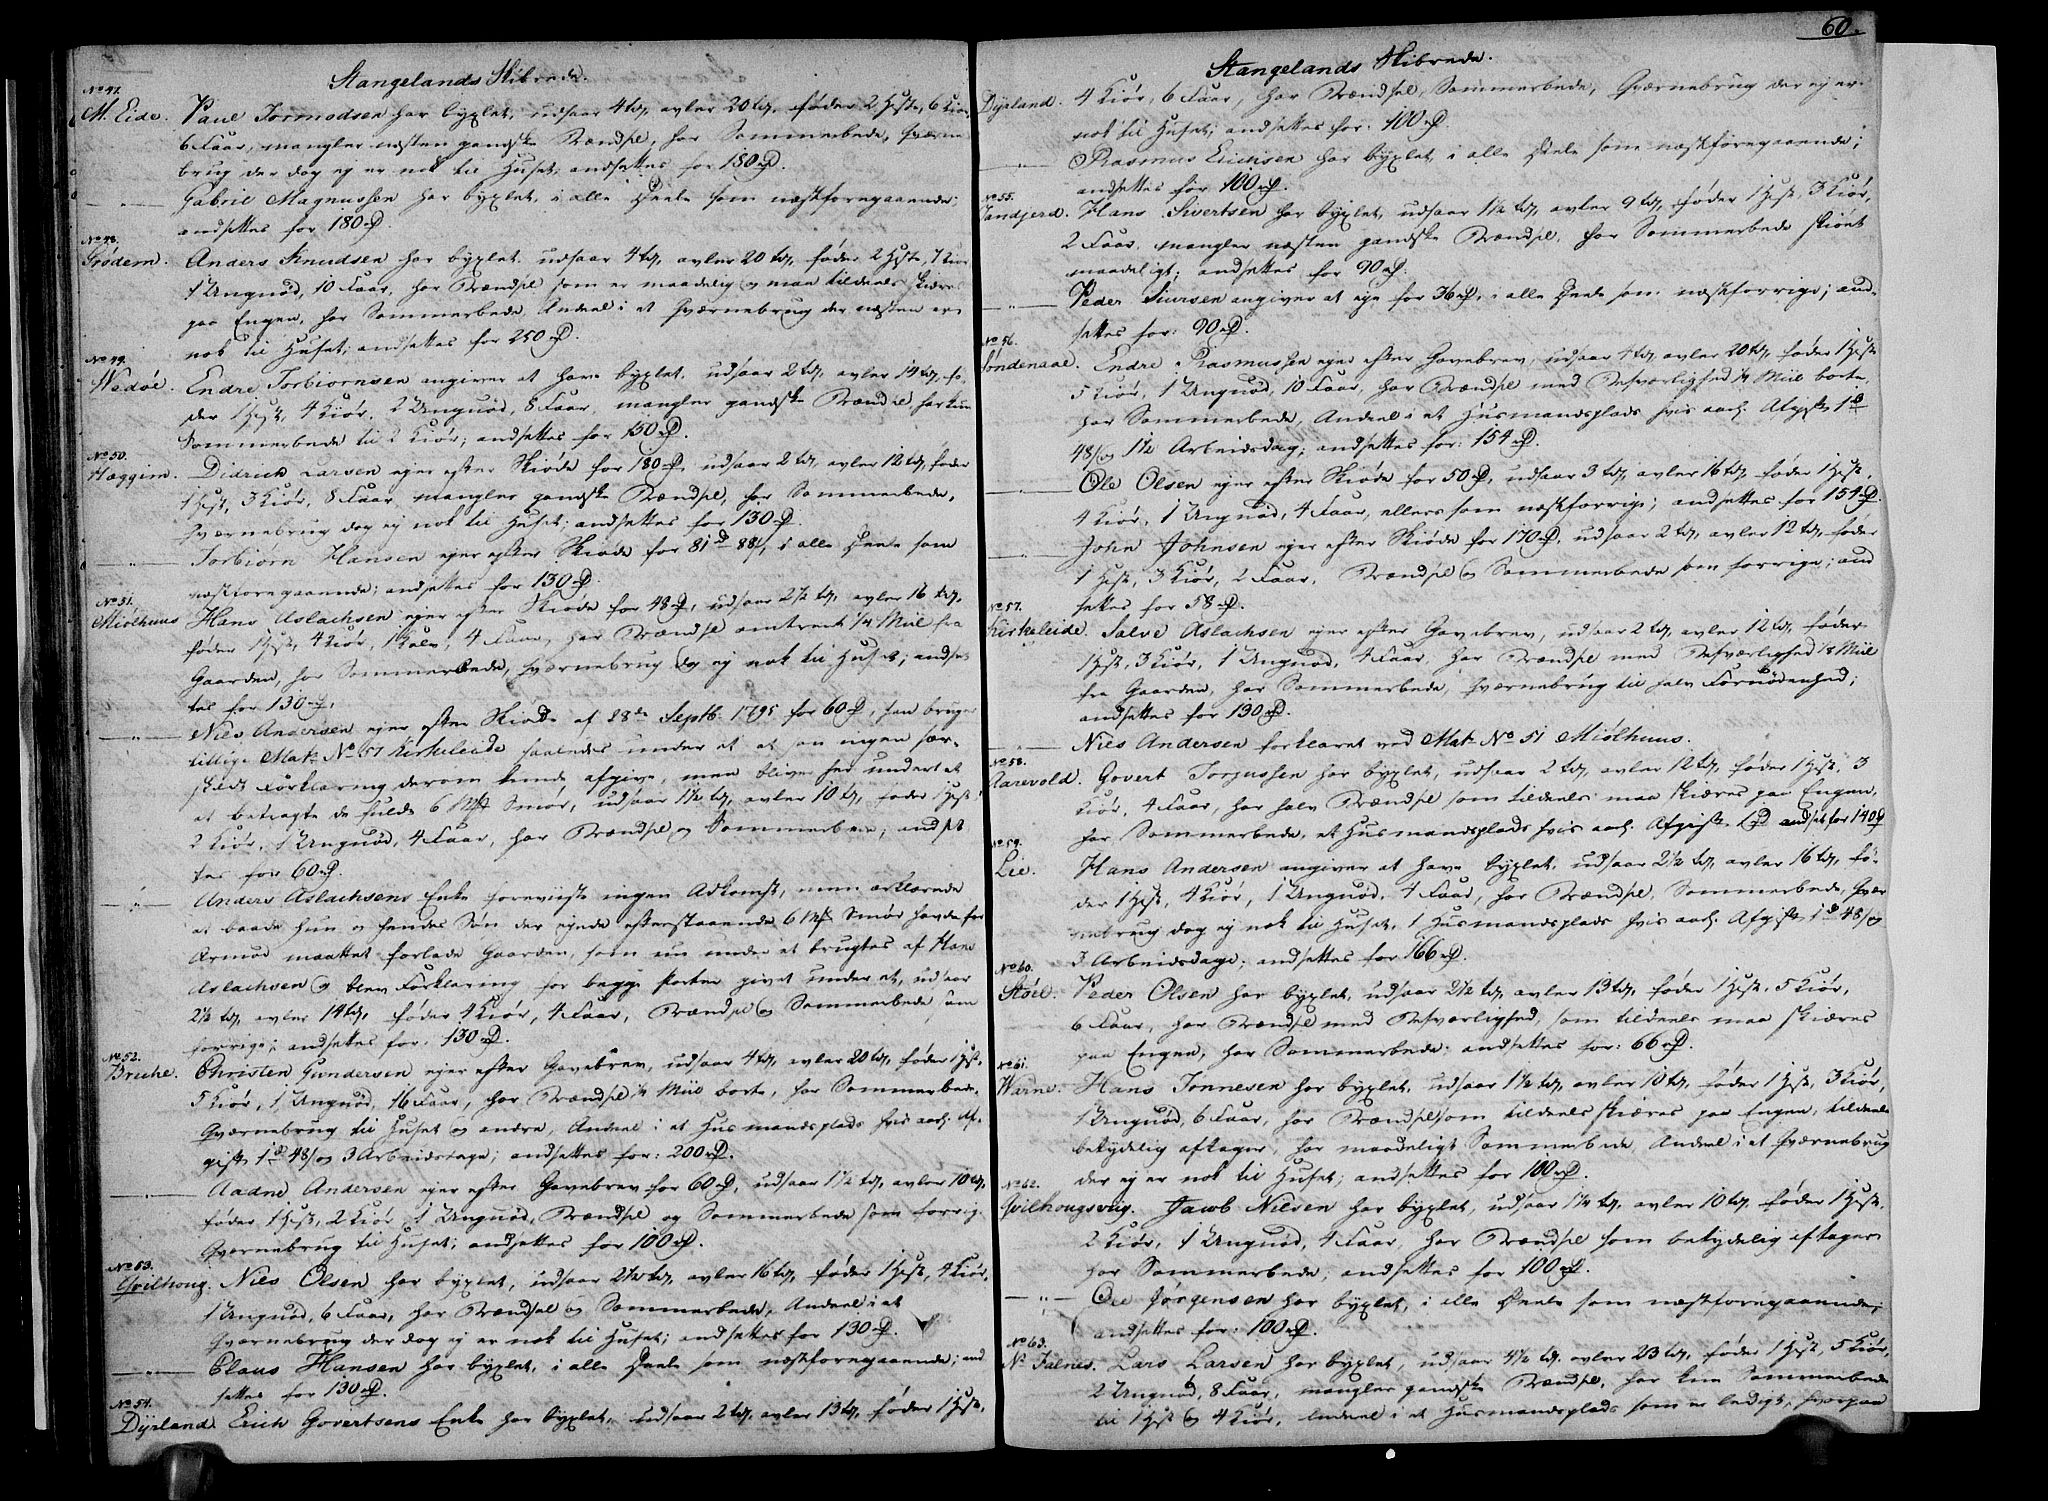 Stangelands Skibrede.
No 47.
M. Eide. Paul Tormodsen har byxlet, udsaar 4 td, avler 20 td, føder 2 Heste, 6 Kiør,
6 Faar, mangler næsten gandske Brændsel, har Sommerbede, Qværne
brug der dog ej er nok til Huset, andsettes for 180 rd.
Gabriel Magnussen har byxlet, i alle Deele som næstforegaaende;
andsettes for 180 rd.
No 48.
Grødem. Anders Knudsen har byxlet, udsaar 4 td, avler 20 td, føder 2 Heste, 7 Kiør
1 Ungnød, 10 Faar, har Brændsel som er maadelig og maa tildeels skiæres
paa Engen, har Sommerbede, Andeel i et Qværnebrug der næsten er
nok til Huset; andsettes for 250 rd.
No 49.
Wedøe. Endre Torbiørnsen angiver at have byxlet, udsaar 2 td, avler 14 td, fø-
der 1 Hest, 4 Kiør, 2 Ungnød, 8 Faar, mangler gandske Brændsel har kun
Sommerbede til 2 Kiør; andsettes for 150 rd.
No 50.
Hæggim. Didrich Larsen ejer efter Skiøde for 180 rd, udsaar 2 td, avler 12 td, føder
1 Hest, 3 Kiør, 8 Faar, mangler gandske Brændsel, har Sommerbede,
Qværnebrug dog ej nok til Huset; andsettes for 130 rd.
Torbiørn Hansen ejer efter Skiøde for 81 rd 88 s, i alle Deele som
næstforegaaende; andsettes for 130 rd.
No 51.
Miølhuus Hans Aslachsen ejer efter Skiøde for 48 rd, udsaar 2½ td, avler 16 td,
føder 1 Hest, 4 Kiør, 1 Kalv, 4 Faar, har Brændsel omtrent ¼ Miil fra
Gaarden, har Sommerbede, Qværnebrug dog ej nok til Huset; andset
tes for 130 rd.
Niels Andersen ejer efter Skiøde af 28de Septb. 1795 for 60 rd, han bruger
tillige Mat No 57 Kirkeleide saaledes under et at han ingen sær-
skildt Forklaring derom kunde afgive, men bliver her under et
at betragte de fulde 6 Mk Smør, udsaar 1½ td, avler 10 td, føder 1 Hest,
2 Kiør, 1 Ungnød, 4 Faar, har Brændsel og Sommerbede; andset
tes for 60 rd.
Anders Aslachsens Enke foreviiste ingen Adkomst, men erklærede
at baade hun og hendes Søn der ejede efterstaaende 6 Mk Smør havde for
Armod maattet forlade Gaarden, som nu under et brugtes af Hans
Aslachsen og blev Forklaring for begge Parter givet under et, udsaar
2½ td, avler 14 td, føder 4 Kiør, 4 Faar, Brændsel og Sommerbede som
forrige; andsettes for. 130 rd.
No 52.
Bruhe. Christen Gundersen ejer efter Gavebrev, udsaar 4 td, avler 20 td, føder 1 Hest,
5 Kiør, 1 Ungnød, 16 Faar, har Brændsel ¼ Miil borte, har Sommerbede,
Qværnebrug til Huset og andre, Andeel i et Husmandsplads hvis aarl. Af-
gift 1 rd 48 s og 3 Arbeidsdage; andsettes for: 200 rd.
Aadne Andersen ejer efter Gavebrev for 60 rd, udsaar 1½ td, avler 10 td,
føder 1 Hest, 2 Kiør, 1 Ungnød, Brændsel og Sommerbede som forrig.
Qværnebrug til Huset; andsettes for 100 rd.
No 53.
Qvilhoug. Niels Olsen har byxlet, udsaar 2½ td, avler 16 td, føder 1 Hest, 4 Kiør,
1 Ungnød, 6 Faar, har Brændsel og Sommerbede, Andeel i et
Qværnebrug der dog ej er nok til Huset; andsettes for 130 rd.
Claus Hansen har byxlet, i alle Deele som næstforegaaende; and
settes for 130 rd.
No 54.
Dyrland. Erich Govertsens Enke har byxlet, udsaar 2 td, avler 13 td, føder 1 Hest,
60.
Stangelands Skibrede.
Dyrland. 4 Kiør, 6 Faar, har Brændsel, Sommerbede, Qværnebrug der ej er
nok til Huset; andsettes for: 100 rd.
Rasmus Erichsen har byxlet i alle Deele som næstforegaaende;
andsettes for 100 rd.
No 55.
Sandjerd. Hans Sivertsen har byxlet, udsaar 1½ td, avler 9 td, føder 1 Hest, 3 Kiør,
2 Faar, mangler næsten gandske Brændsel, har Sommerbede skiønt
maadeligt; andsettes for 90 rd.
Peder Siursen angiver at eje for 36 rd, i alle Deele som næstforrige; and-
settes for: 90 rd.
No 56.
Søndenaae. Endre Rasmussen ejer efter Gavebrev, udsaar 4 td, avler 20 td, føder 1 Hest
5 Kiør, 1 Ungnød, 10 Faar, har Brændsel med Besværlighed ¼ Miil borte,
har Sommerbede, Andeel i et Husmandsplads hvis aarl. Afgift 1 rd
48 s og 1½ Arbeidsdag; andsettes for: 154 rd.
Ole Olsen ejer efter Skiøde for 50 rd, udsaar 3 td, avler 16 td, føder 1 Hest,
4 Kiør, 1 Ungnød, 4 Faar, ellers som næstforrige; andsettes for 154 rd.
John Johnsen ejer efter Skiøde for 170 rd, udsaar 2 td, avler 12 td, føder
1 Hest, 3 Kiør, 2 Faar, Brændsel og Sommerbede som forrige; and
settes for 58 rd.
No 57.
Kirkeleide. Salve Aslachsen ejer efter Gavebrev, udsaar 2 td, avler 12 td, føder
1 Hest, 3 Kiør, 1 Ungnød, 4 Faar, har Brændsel med Besværlighed ⅛ Miil
fra Gaarden, har Sommerbede, Qværnebrug til halv Fornødenhed;
andsettes for 130 rd.
Niels Andersen forklaret ved Mat No 51 Miølhuus.
No 58.
Aarevold. Govert Torjussen har byxlet, udsaar 2 td, avler 12 td, føder 1 Hest, 3
Kiør, 4 Faar, har halv Brændsel som tildeels maa skiæres paa Engen,
har Sommerbede, et Husmandsplads hvis aarl. Afgift 1 rd andset for 140 rd
No 59.
Lie. Hans Andersen angiver at have byxlet, udsaar 2½ td, avler 16 td, fø-
der 1 Hest, 4 Kiør, 1 Ungnød, 4 Faar, har Brændsel, Sommerbede, Qvær
nebrug dog ej nok til Huset, 1 Husmandsplads hvis aarl. Afgift 1 rd 48 s og
3 Arbeidsdage; andsettes for 166 rd.
No 60.
Støle. Peder Olsen har byxlet, udsaar 2½ td, avler 13 td, føder 1 Hest, 5 Kiør,
6 Faar, har Brændsel med Besværlighed, som tildeels maa skiæres
paa Engen, har Sommerbede; andsettes for: 66 rd.
No 61.
Warne. Hans Tønnesen har byxlet, udsaar 1½ td, avler 10 td, føder 1 Hest, 3 Kiør,
1 Ungnød, 6 Faar, har Brændsel som tildeels skiæres paa Engen, tildeels
betydelig aftager, har maadeligt Sommerbede, Andeel i et Qværnebrug
der ej er nok til Huset; andsettes for 100 rd.
No 62.
Qvilhougsvig. Jacob Nilsen har byxlet, udsaar 1½ td, avler 10 td, føder 1 Hest,
2 Kiør, 1 Ungnød, 4 Faar, har Brændsel som betydelig aftager
har Sommerbede; andsettes for 100 rd.
Ole Jørgensen har byxlet, i alle Deele som næstforegaaende;
andsettes for: 100 rd.
No 63.
N. Falnes. Lars Larsen har byxlet, udsaar 4½ td, avler 23 td, føder 1 Hest, 5 Kiør,
2 Ungnød, 8 Faar, mangler gandske Brændsel, har kun Sommerbede
til 1 Hest og 4 Kiør, Andeel i et Husmandsplads som er ledigt, hvorpaa